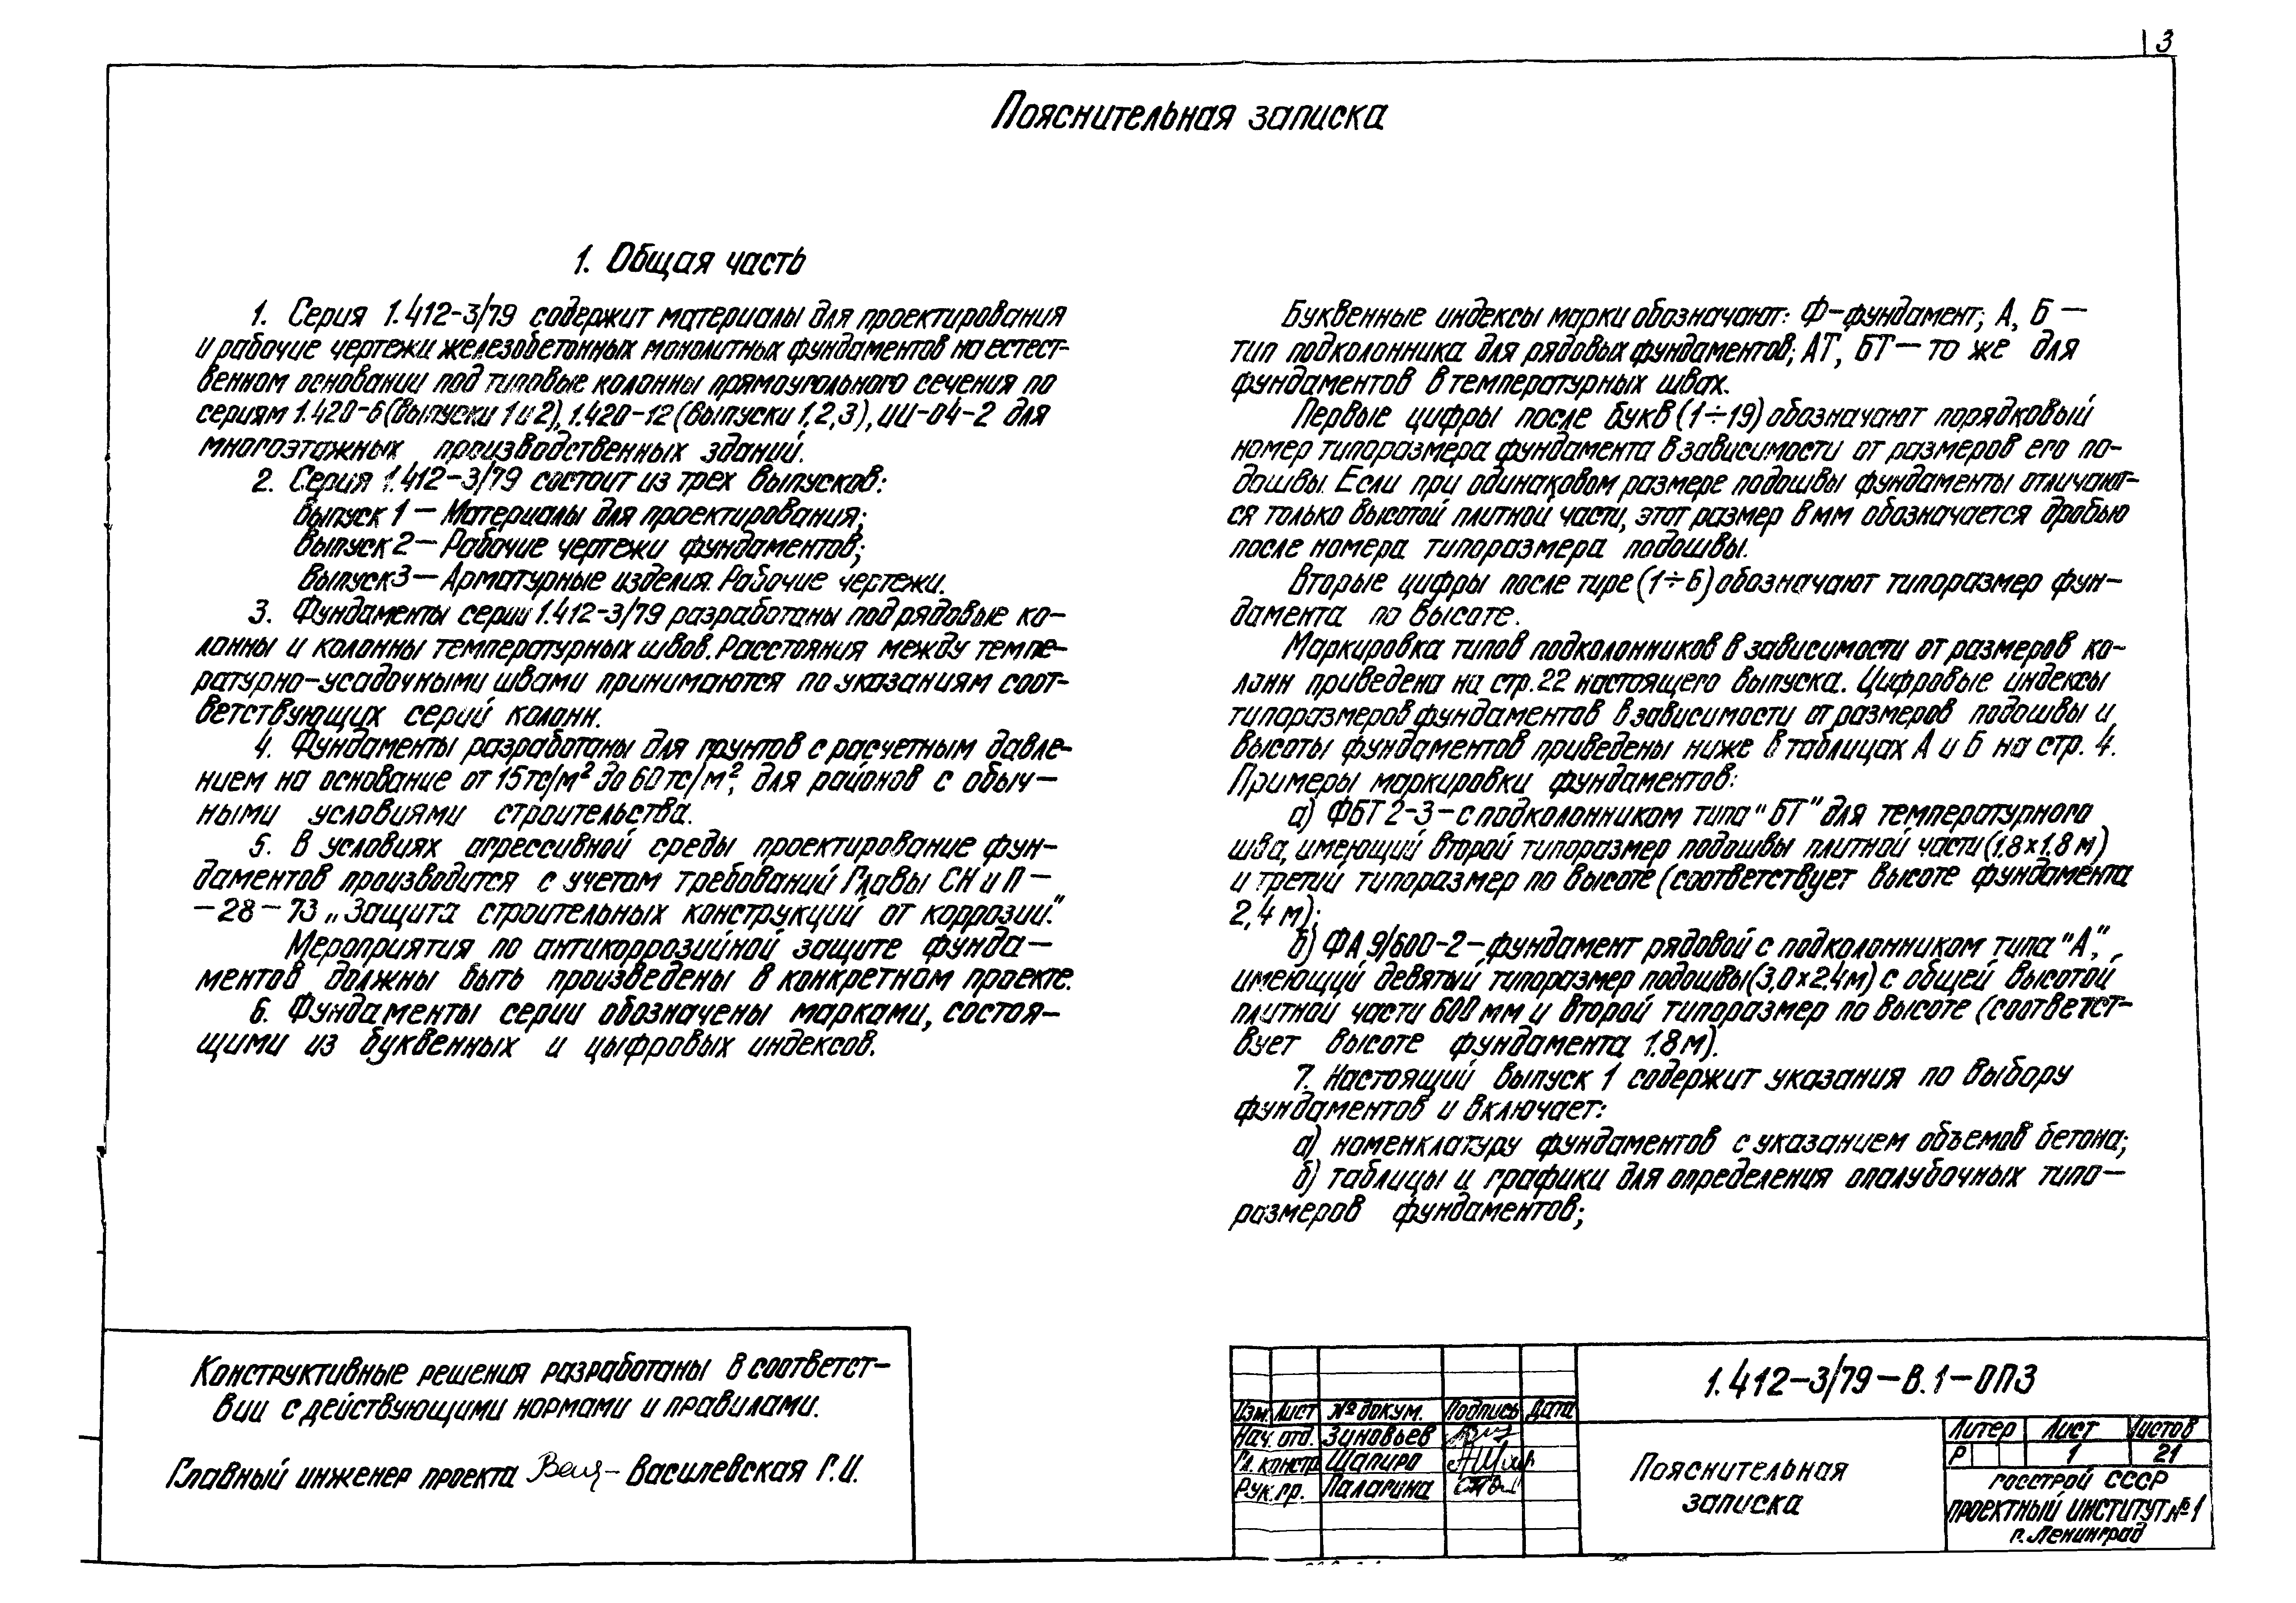 3
Пояснительная записка
1. Общая часть
1. Серия 1.412-3/79 содержит материалы для проектирования
и рабочие чертежи железобетонных монолитных фундаментов на естест-
венном основании под типовые колонны прямоугольного сечения по
сериям 1.420-6 (выпуски 1 и 2), 1.420-12 (выпуски 1,2,3), ИИ-04-2 для
многоэтажных производственных зданий.
2. Серия 1.412-3/79 состоит из трех выпусков:
Выпуск 1 — Материалы для проектирования;
Выпуск 2 — Рабочие чертежи фундаментов;
Выпуск 3 — Арматурные изделия. Рабочие чертежи.
3. Фундаменты серии 1.412-3/79 разработаны под рядовые ко-
лонны и колонны температурных швов. Расстояния между темпе-
ратурно-усадочными швами принимаются по указаниям соот-
ветствующих серий колонн.
4. Фундаменты разработаны для грунтов с расчетным давле-
нием на основание от 15 тс/м² до 60 тс/м², для районов с обыч-
ными условиями строительства.
5. В условиях агрессивной среды проектирование фун-
даментов производится с учетом требований Главы СН и П —
— 28 — 73 „Защита строительных конструкций от коррозии."
Мероприятия по антикоррозийной защите фунда-
ментов должны быть произведены в конкретном проекте.
6. Фундаменты серии обозначены марками, состоя-
щими из буквенных и цыфровых индексов.
Буквенные индексы марки обозначают: Ф-фундамент; А, Б —
тип подколонника для рядовых фундаментов; АТ, БТ — то же для
фундаментов в температурных швах.
Первые цифры после букв (1÷19) обозначают порядковый
номер типоразмера фундамента в зависимости от размеров его по-
дошвы. Если при одинаковом размере подошвы фундаменты отличают-
ся только высотой плитной части, этот размер в мм обозначается дробью
после номера типоразмера подошвы.
Вторые цифры после тире (1÷6) обозначают типоразмер фун-
дамента по высоте.
Маркировка типов подколонников в зависимости от размеров ко-
лонн приведена на стр. 22 настоящего выпуска. Цифровые индексы
типоразмеров фундаментов в зависимости от размеров подошвы и
высоты фундаментов приведены ниже в таблицах А и Б на стр. 4.
Примеры маркировки фундаментов:
а) ФБТ 2-3 — с подколонником типа "БТ" для температурного
шва, имеющий второй типоразмер подошвы плитной части (1.8×1.8 м)
и третий типоразмер по высоте (соответствует высоте фундамента
2,4 м);
б) ФА 9/600-2 — фундамент рядовой с подколонником типа "А",
имеющий девятый типоразмер подошвы (3,0×2.4м) с общей высотой
плитной части 600 мм и второй типоразмер по высоте (соответст-
вует высоте фундамента 1.8 м).
7. Настоящий выпуск 1 содержит указания по выбору
фундаментов и включает:
а) номенклатуру фундаментов с указанием объемов бетона;
б) таблицы и графики для определения опалубочных типо-
размеров фундаментов;
Конструктивные решения разработаны в соответст-
вии с действующими нормами и правилами.
Главный инженер проекта Василевская Г.И.
1.412-3/79-В.1-ОПЗ
Изм. Лист № докум. Подпись Дата
Нач. отд. Зиновьев
Гл. констр. Шапиро
Рук. гр. Палагина
Пояснительная
записка
Литер Лист Листов
Р 1 21
ГОССТРОЙ СССР
ПРОЕКТНЫЙ ИНСТИТУТ №1
г. Ленинград